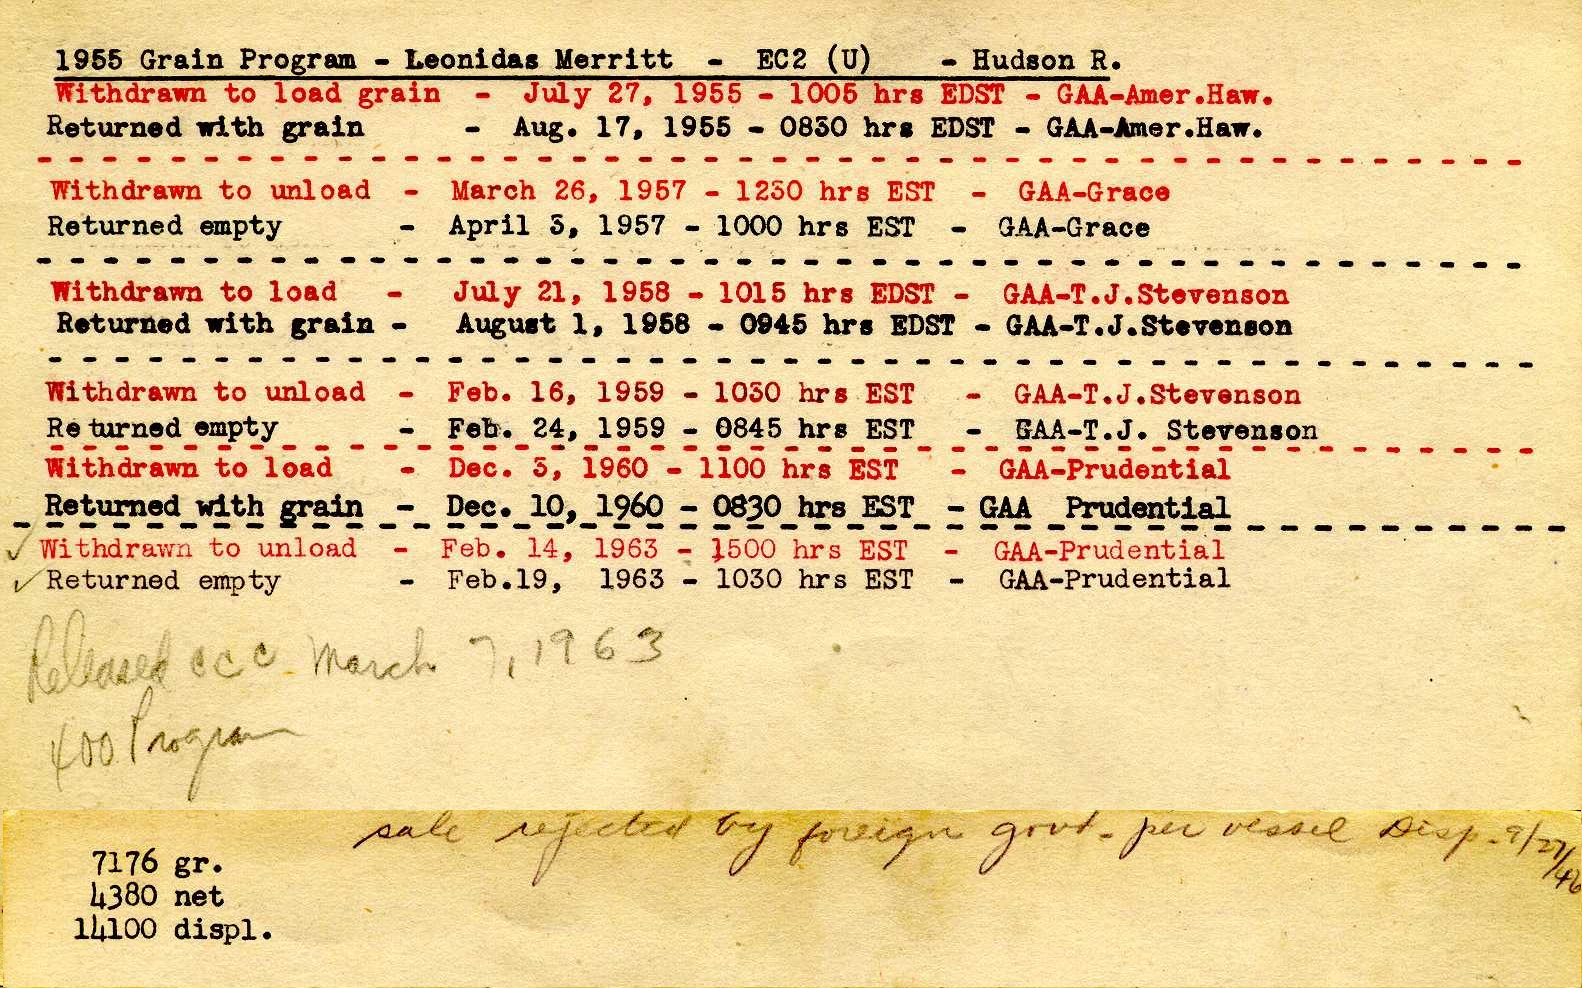 1955 Grain Program - Leonidas Merritt - EC2 (U) - Hudson R.
Withdrawn to load grain - July 27, 1955 - 1005 hrs EDST - GAA-Amer.Haw.
Returned with grain - Aug. 17, 1955 - 0830 hrs EDST - GAA-Amer.Haw.
Withdrawn to unload - March 26, 1957 - 1230 hrs EST - GAA-Grace
Returned empty - April 3, 1957 - 1000 hrs EST - GAA-Grace
Withdrawn to load - July 21, 1958 - 1015 hrs EDST - GAA-T.J.Stevenson
Returned with grain - August 1, 1958 - 0945 hrs EDST - GAA-T.J.Stevenson
Withdrawn to unload - Feb. 16, 1959 - 1030 hrs EST - GAA-T.J.Stevenson
Returned empty - Feb. 24, 1959 - 0845 hrs EST - GAA-T.J. Stevenson
Withdrawn to load - Dec. 3, 1960 - 1100 hrs EST - GAA-Prudential
Returned with grain - Dec. 10, 1960 - 0830 hrs EST - GAA Prudential
✓ Withdrawn to unload - Feb. 14, 1963 - 1500 hrs EST - GAA-Prudential
✓ Returned empty - Feb.19, 1963 - 1030 hrs EST - GAA-Prudential
Released CCC March 7, 1963
400 Program
sale rejected by foreign govt- per vessel Disp. 9/27/46
7176 gr.
4380 net
14100 displ.